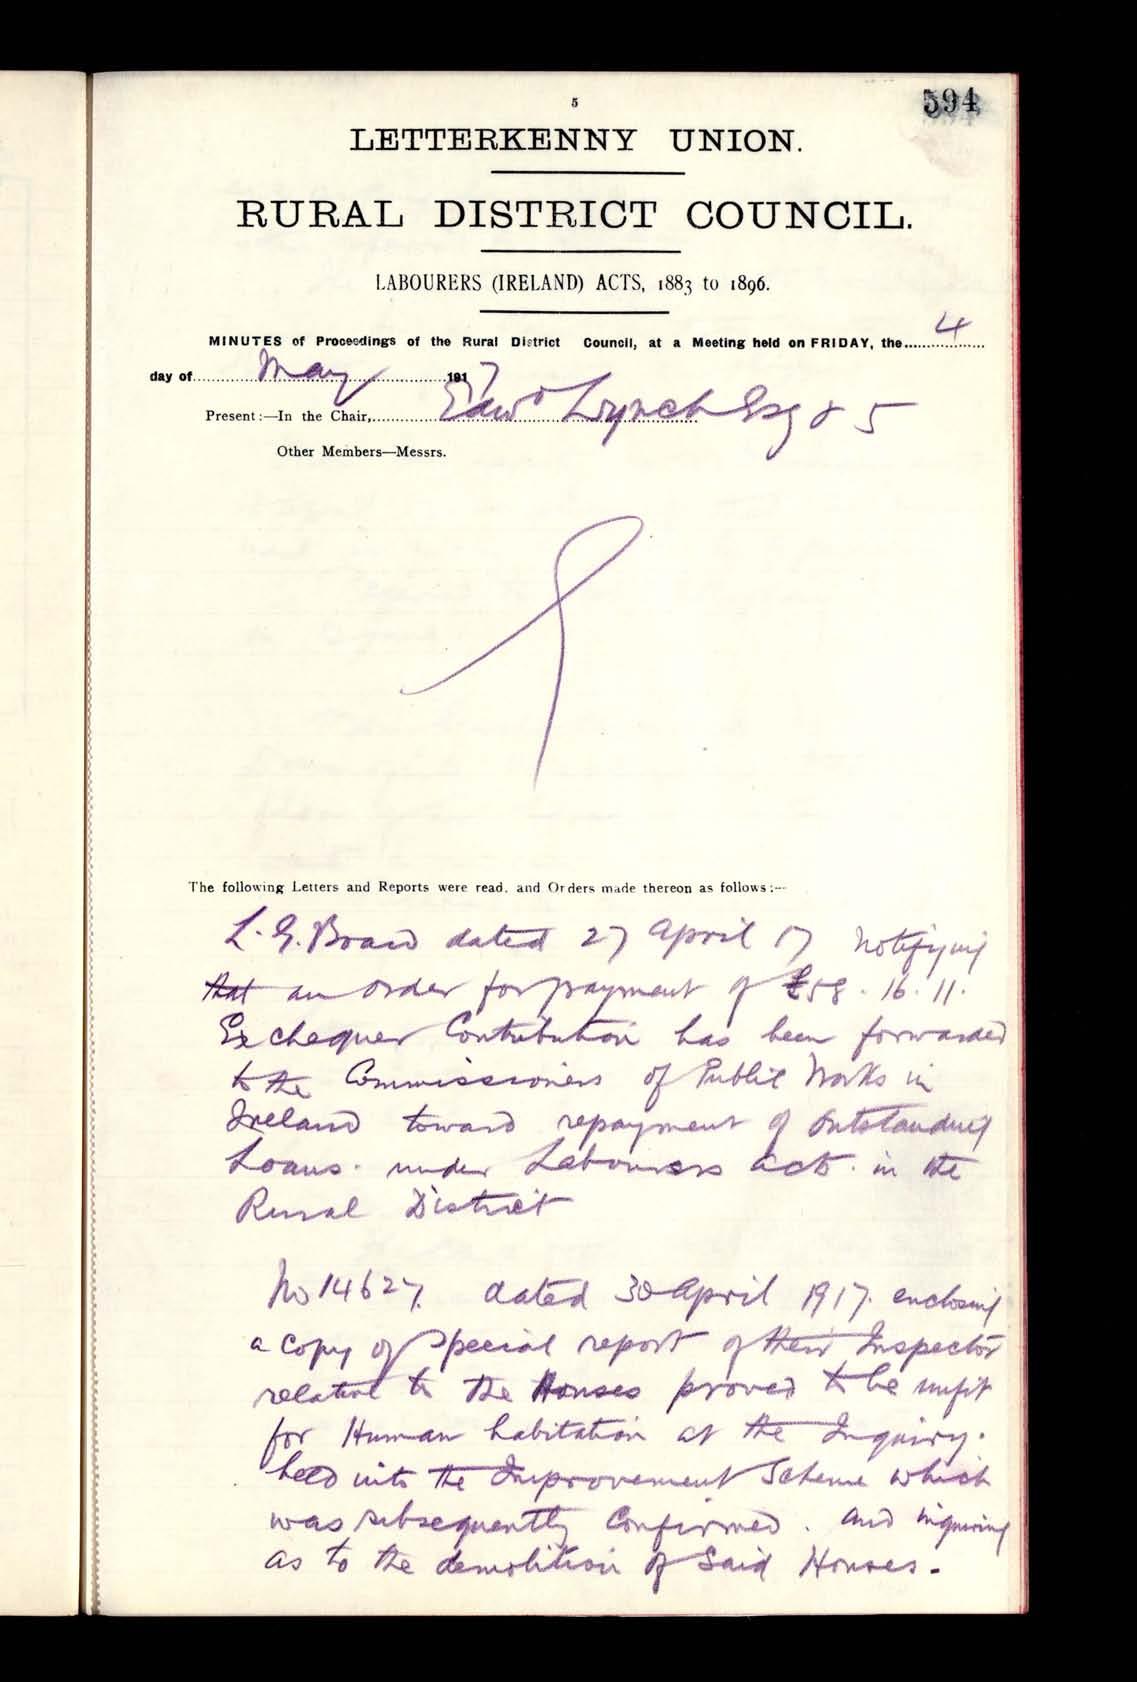 594
5
LETTERKENNY UNION.
RURAL DISTRICT COUNCIL.
LABOURERS (IRELAND) ACTS, 1883 to 1896.
MINUTES of Proceedings of the Rural District Council, at a Meeting held on FRIDAY, the 4
day of May 1917
Present:—In the Chair, Edwd Lynch Esq & 5
Other Members—Messrs.
The following Letters and Reports were read, and Orders made thereon as follows:—
L. G. Board dated 27 April 17 notifying
that an order for payment of £58. 16. 11.
Exchequer Contribution has been forwarded
to the Commissioners of Public Works in
Ireland toward repayment of Outstanding
Loans. under Labourers Acts. in the
Rural District
No 14627. dated 30 April 1917. enclosing
a copy of Special report of their Inspector
relative to the Houses proved to be unfit
for Human habitation at the Inquiry.
held into the Improvement Scheme which
was subsequently Confirmed. and inquiring
as to the demolition of Said Houses.